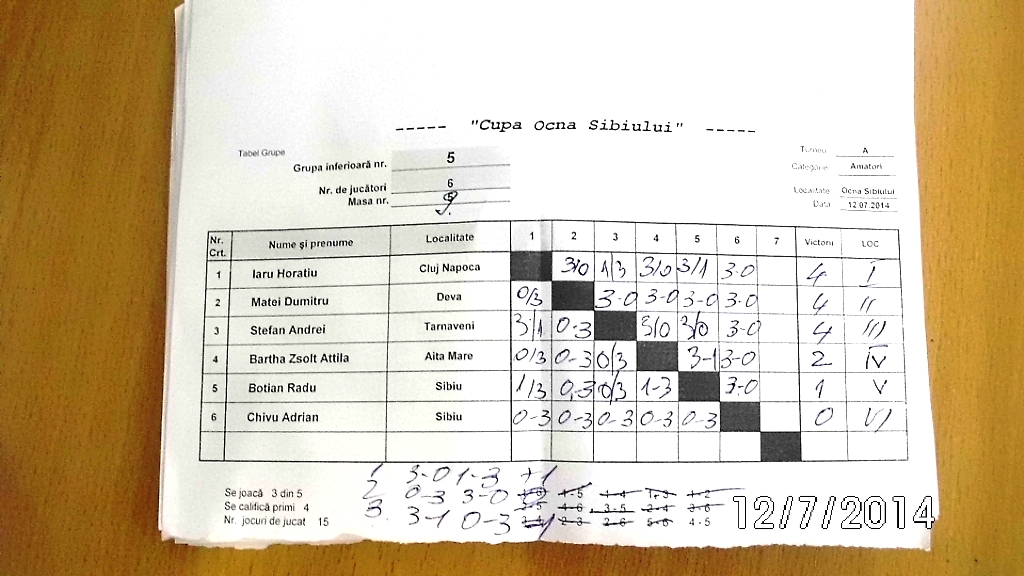 ----- "Cupa Ocna Sibiului" -----
Tabel Grupe
Grupa inferioară nr. 5
Nr. de jucători 6
Masa nr. 9
Turneu A
Categorie Amatori
Localitate Ocna Sibiului
Data 12.07.2014
Nr. Crt. Nume şi prenume Localitate 1 2 3 4 5 6 7 Victorii LOC
1 Iaru Horatiu Cluj Napoca 3/0 1/3 3/0 3/1 3-0 4 I
2 Matei Dumitru Deva 0/3 3-0 3-0 3-0 3-0 4 II
3 Stefan Andrei Tarnaveni 3/1 0-3 3/0 3/0 3-0 4 III
4 Bartha Zsolt Attila Aita Mare 0/3 0-3 0/3 3-1 3-0 2 IV
5 Botian Radu Sibiu 1/3 0-3 0/3 1-3 3-0 1 V
6 Chivu Adrian Sibiu 0-3 0-3 0-3 0-3 0-3 0 VI
1 3-0 1-3 +1
2 0-3 3-0 0
3. 3-1 0-3 -1
Se joacă 3 din 5
Se califică primi 4
Nr. jocuri de jucat 15
1-6 1-5 1-4 1-3 1-2
2-5 4-6 3-5 2-4 3-6
3-4 2-3 2-6 5-6 4-5
12/7/2014